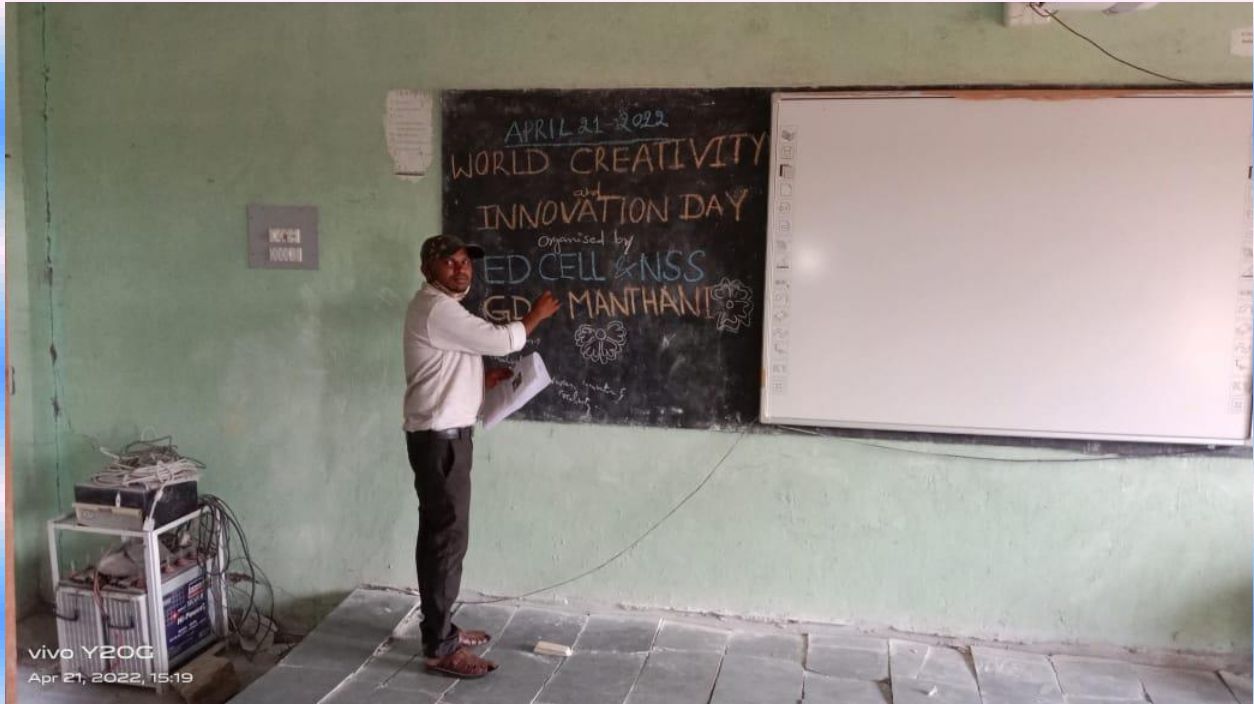 APRIL 21-2022
WORLD CREATIVITY
and
INNOVATION DAY
Organised by
ED CELL & NSS
GD MANTHANI
Hi-Power
vivo Y20G
Apr 21, 2022, 15:19